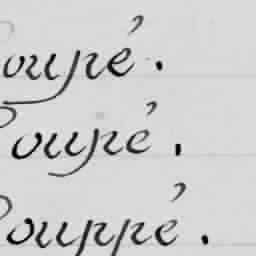 oupé.
Coupé.
Couppé.